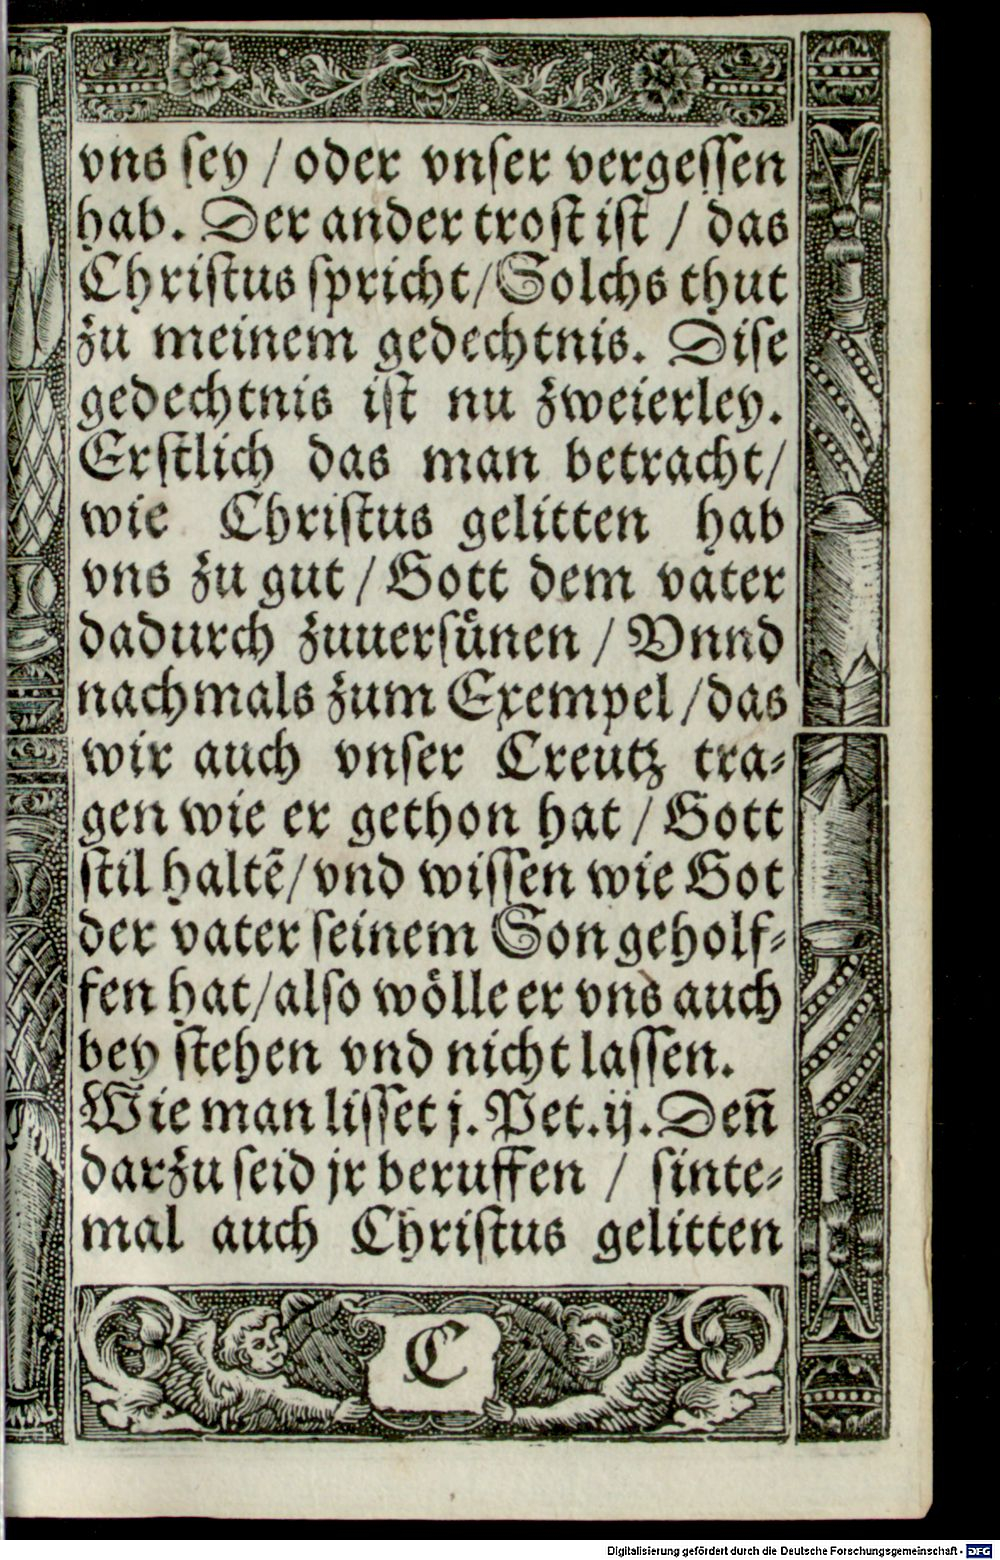 vns sey / oder vnser vergessen
hab. Der ander trost ist / das
Christus spricht/Solchs thut
zu meinem gedechtnis. Dise
gedechtnis ist nu zweierley.
Erstlich das man betracht/
wie Christus gelitten hab
vns zu gut / Gott dem vater
dadurch zuuersünen / Vnnd
nachmals zum Exempel /das
wir auch vnser Creutz tra⸗
gen wie er gethon hat / Gott
stil haltē/vnd wissen wie Got
der vater seinem Son geholf⸗
fen hat/also wölle er vns auch
bey stehen vnd nicht lassen.
Wie man lisset j. Pet.ij. Den̄
darzu seid jr beruffen / sinte⸗
mal auch Christus gelitten
C
Digitalisierung gefördert durch die Deutsche Forschungsgemeinschaft - DFG